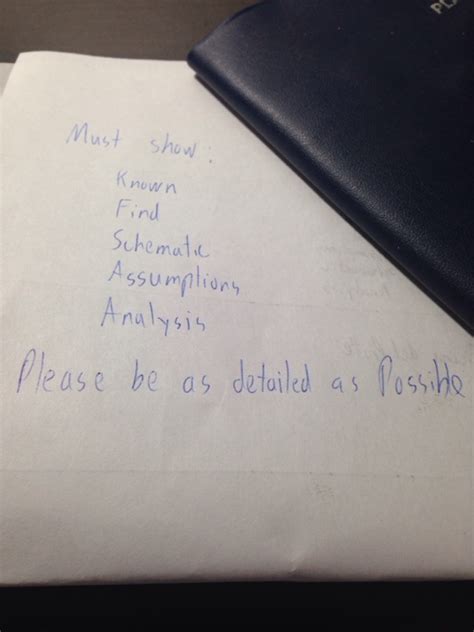 PL
Must show:
Known
Find
Schematic
Assumptions
Analysis
Please be as detailed as Possible